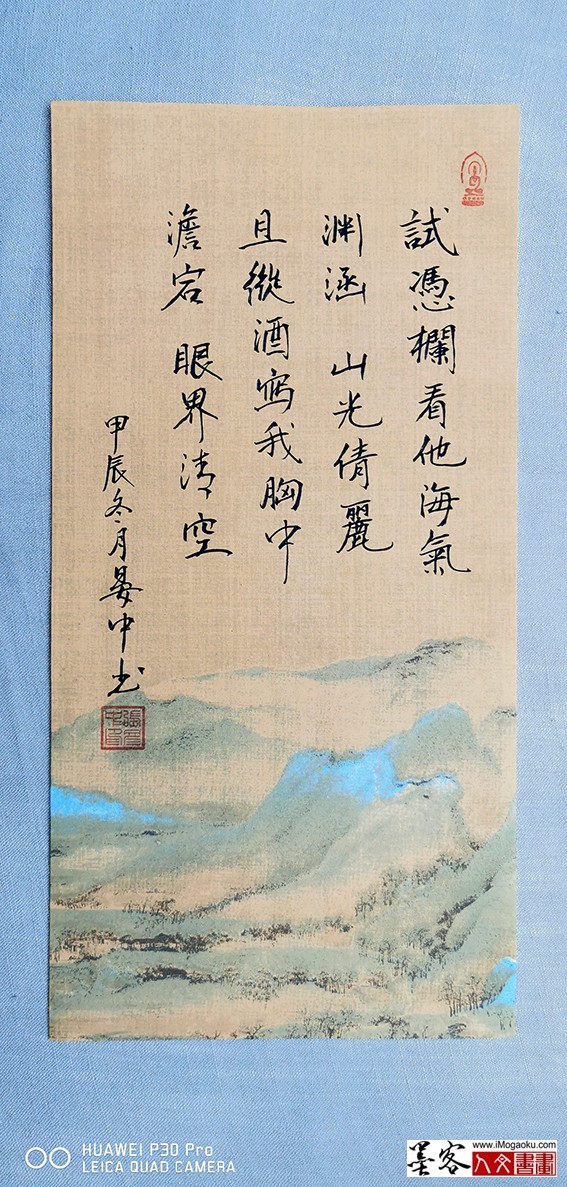 試憑欄看他海氣
渊涵 山光倩麗
且縱酒寫我胸中
澹宕 眼界清空
甲辰冬月晏中书
HUAWEI P30 Pro
LEICA QUAD CAMERA
墨客 www.iMogaoku.com
人文書畫